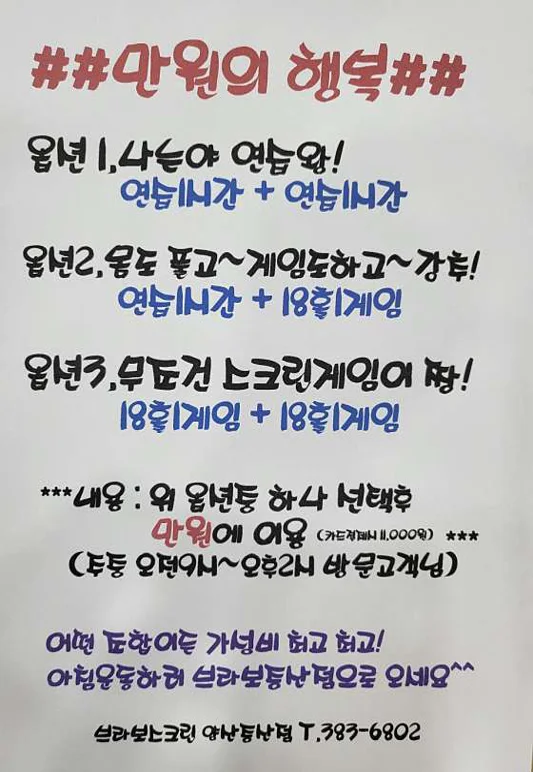 ##만원의 행복##
옵션 1, 나는야 연습왕!
연습1시간 + 연습1시간
옵션2, 몸도 풀고~게임도하고~강추!
연습1시간 + 18홀1게임
옵션3, 무조건 스크린게임이 짱!
18홀1게임 + 18홀1게임
***내용 : 위 옵션중 하나 선택후
만원에 이용 (카드결제시 11.000원) ***
(주중 오전9시~오후2시 방문고객님)
어떤 조합이든 가성비 최고 최고!
아침운동하러 브라보통산점으로 오세요^^
브라보스크린 양산통산점 T.383-6802